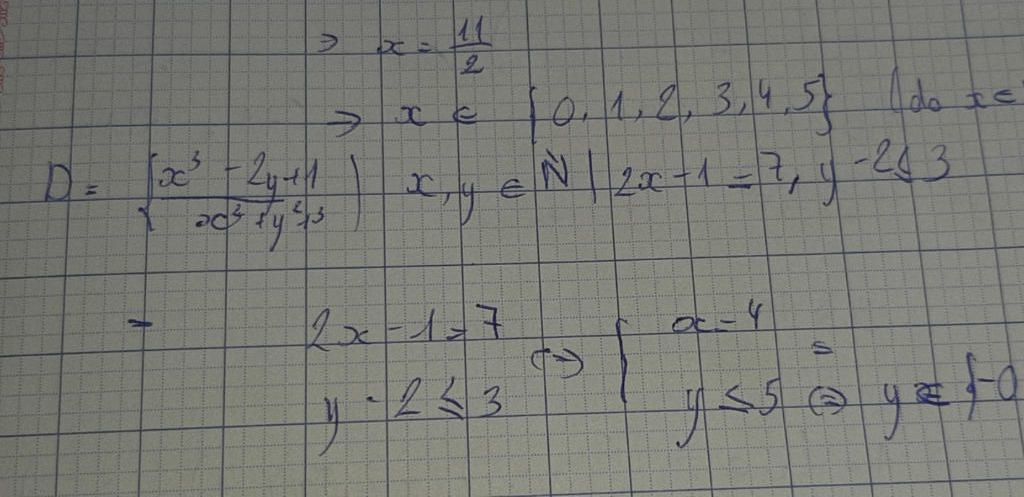 ⇒ x = 11/2
⇒ x ∈ {0, 1, 2, 3, 4, 5} (do x ∈
D = { x³ - 2y + 1 / x³ + y² + 3 | x, y ∈ N | 2x - 1 = 7, y - 2 ≤ 3
- 2x - 1 = 7 ⇔ { x = 4
y - 2 ≤ 3 y ≤ 5 ⇔ y = {-0